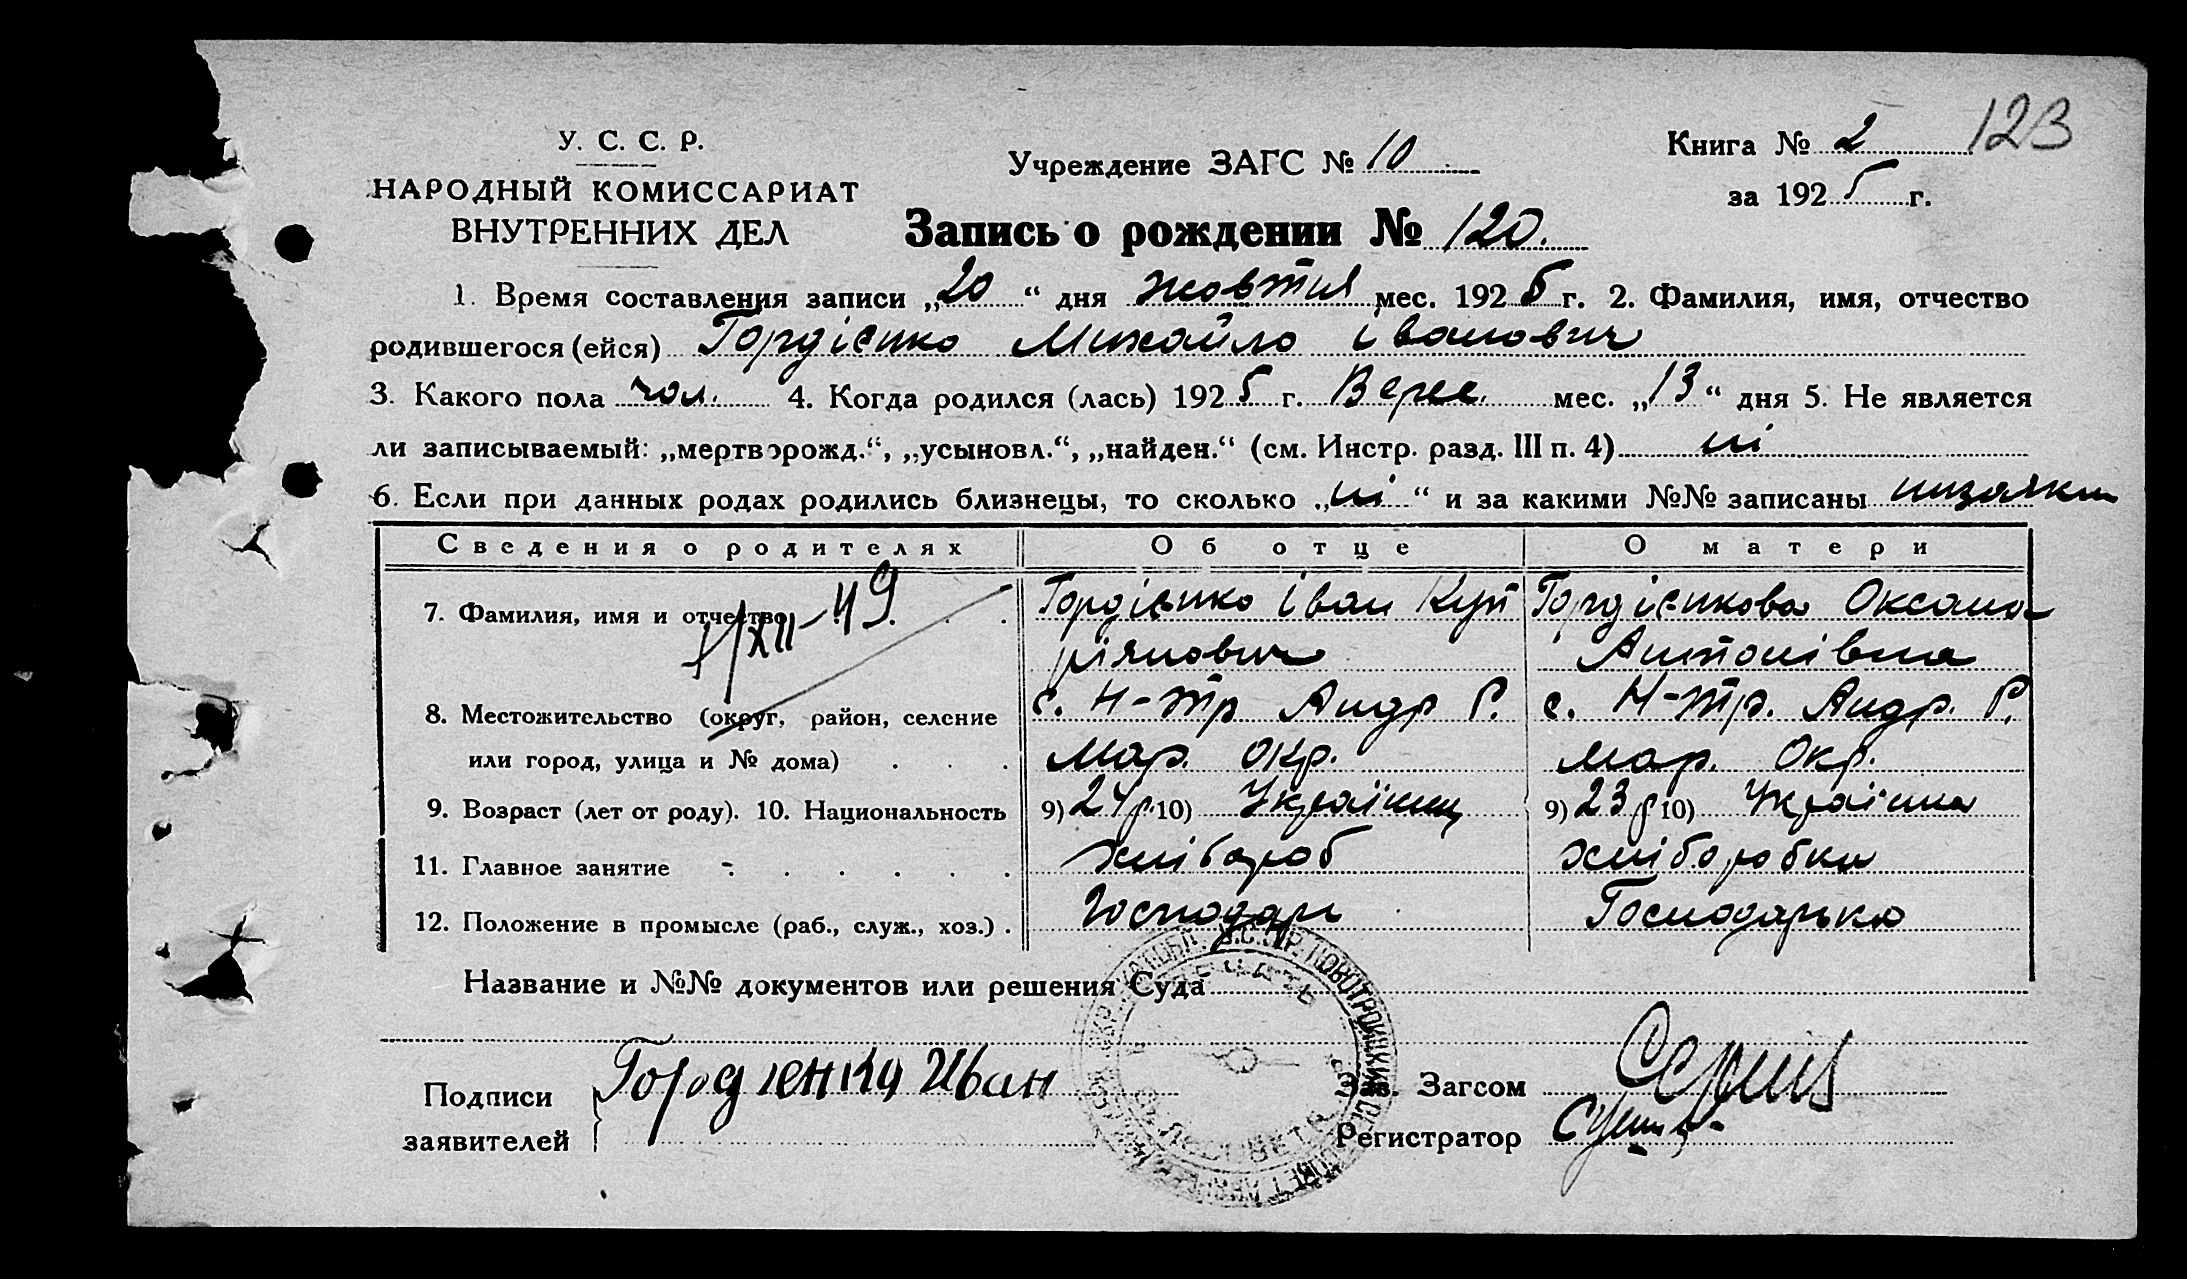 123
У. С. С. Р.
НАРОДНЫЙ КОМИССАРИАТ
ВНУТРЕННИХ ДЕЛ
Учреждение ЗАГС № 10
Книга № 2
за 1925 г.
Запись о рождении № 120.
1. Время составления записи „20“ дня жовтня мес. 1925 г. 2. Фамилия, имя, отчество
родившегося (ейся) Гордієнко Михайло Іванович
3. Какого пола чол. 4. Когда родился (лась) 1925 г. Верес. мес. „13“ дня 5. Не является
ли записываемый: „мертворожд.“, „усыновл.“, „найден.“ (см. Инстр. разд. III п. 4) ні
6. Если при данных родах родились близнецы, то сколько „ні“ и за какими №№ записаны
Сведения о родителях Об отце О матери
7. Фамилия, имя и отчество Гордієнко Іван Куп Гордієнкова Оксана
ріянович Антонівна
8. Местожительство (округ, район, селение с. Н-тр Андр Р. с. Н-тр. Андр. Р.
или город, улица и № дома) Мар. Окр. Мар. Окр.
9. Возраст (лет от роду). 10. Национальность 9) 24 р. 10) Українец 9) 23 р 10) Українка
11. Главное занятие хлібороб хліборобка
12. Положение в промысле (раб., служ., хоз.) Господарь Господарька
Название и №№ документов или решения Суда
Подписи
заявителей Гордіенко Иван
Зав. Загсом
Регистратор